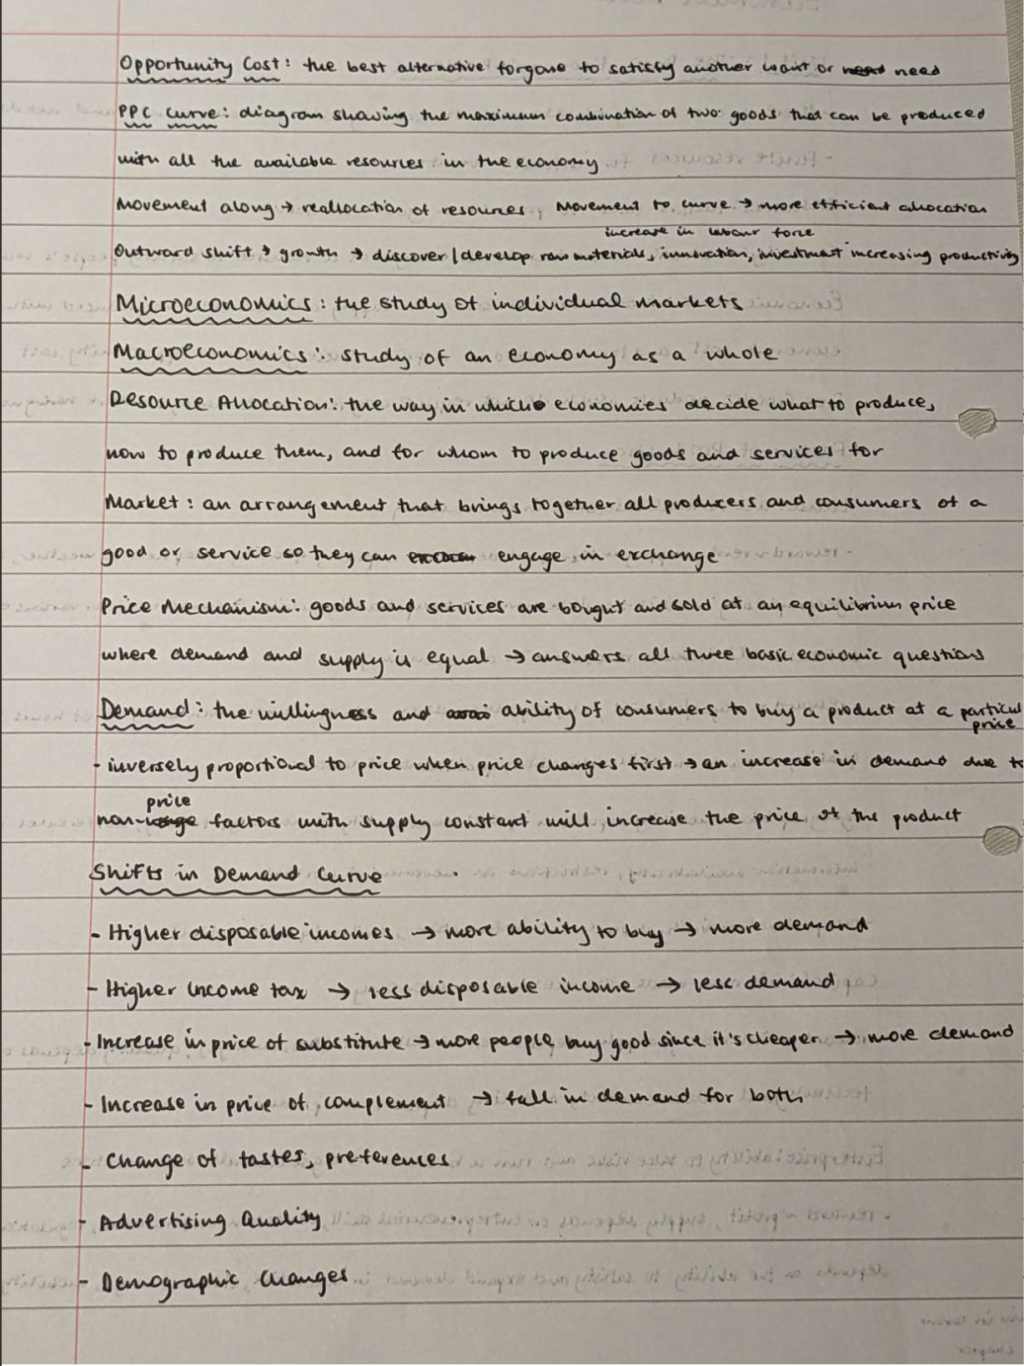 Opportunity Cost: the best alternative forgone to satisfy another want or need
PPC Curve: diagram showing the maximum combination of two goods that can be produced
with all the available resources in the economy
Movement along → reallocation of resources, Movement to curve → more efficient allocation
increase in labour force
Outward shift → growth → discover/develop raw materials, innovation, investment increasing productivity
Microeconomics: the study of individual markets
Macroeconomics: study of an economy as a whole
Resource Allocation: the way in which economies decide what to produce,
how to produce them, and for whom to produce goods and services for
Market: an arrangement that brings together all producers and consumers of a
good or service so they can engage in exchange
Price Mechanism: goods and services are bought and sold at an equilibrium price
where demand and supply is equal → answers all three basic economic questions
Demand: the willingness and ability of consumers to buy a product at a particul
price
- inversely proportional to price when price changes first → an increase in demand due to
price
non- factors with supply constant will increase the price of the product
Shifts in Demand Curve
- Higher disposable incomes → more ability to buy → more demand
- Higher income tax → less disposable income → less demand
- Increase in price of substitute → more people buy good since it's cheaper → more demand
- Increase in price of complement → fall in demand for both
- Change of tastes, preferences
- Advertising Quality
- Demographic Changes